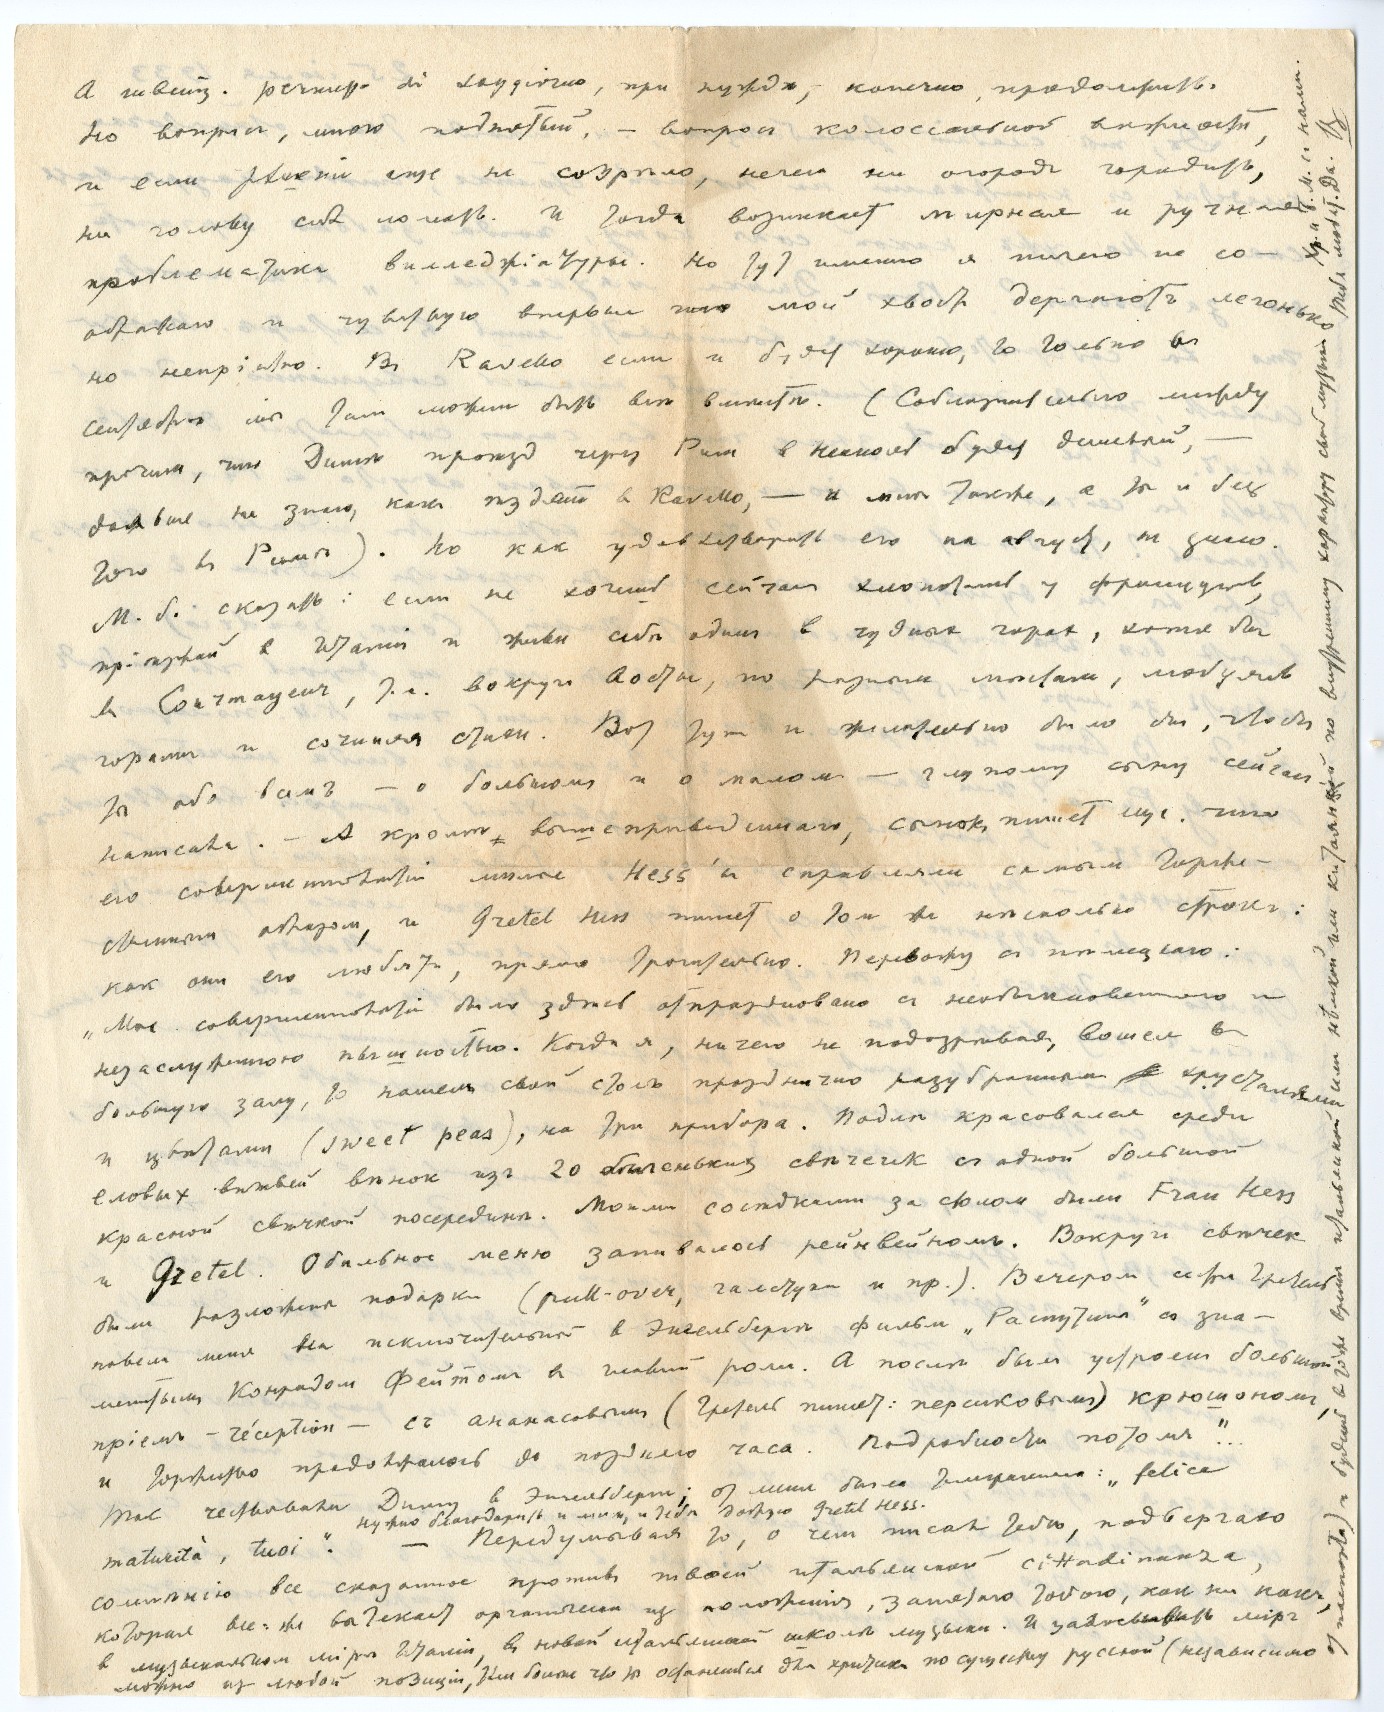 А швейц. режим ей, при нужде, конечно, продолжить.
Но вопрос, мною поднятый, — вопрос колоссальной важности,
и если еще не созрело, нечего ни огород городить,
ни голову себе ломать. И тогда возникает мирная и ручная
проблематика вилледжiатуры. Но тут именно я ничего не со-
ображаю и чувствую впервые что мой хвост дергают легонько
но непрiятно. В Ravello если и будет хорошо, то только в
сентябре мы там можем быть все вместе. (Соблазнительно между
прочим, что Димин проезд через Рим в Неаполь будет дешевый, —
дальше не знаю, как пздет в Ravello, — и мне также, а ты и без
того в Риме). Но как удовлетворить его на август, не знаю.
М. б. сказать: если не хочешь сейчас хлопотать у французов,
прiезжай в Италiю и живи себе один в чудных горах, хотя бы
в Courmayeur, т. е. вокруг Аосты, по разным местам, любуясь
горами и сочиняя стихи. Вот тут и желательно было бы, чтобы
ты обо всем — о большом и о малом — глупому сыну сейчас
написала. — А кроме вышеприведенного, сынок пишет еще, что
его совершеннолетiе милые Hess'ы справляли самым торже-
ственным образом, и Gretel Hess пишет о том же несколько строк:
как они его любят, прямо трогательно. Перевожу с немецкого:
„Мое совершеннолетiе было здесь отпраздновано с необыкновенною и
незаслуженною пышностью. Когда я, ничего не подозревая, вошел в
большую залу, то нашел свой стол празднично разубранным хрусталями
и цветами (sweet peas), на три прибора. Подле красовался среди
еловых ветвей венок из 20 беленьких свечечек с одной большой
красной свечкой посередине. Моими соседками за столом были Frau Hess
и Gretel. Обильное меню запивалось рейнвейном. Вокруг свечек
были разложены подарки (pull-over, галстуки и пр.). Вечером сестра Гретель
повели меня на исключительный в Энгельберге фильм „Распутин" со зна-
менитым Конрадом Фейтом в главной роли. А после был устроен большой
прiем — réception — с ананасовым (Гретель пишет: персиковым) крюшоном,
и торжество продолжалось до позднего часа. Подробности потом"...
Так чествовали Диму в Энгельберге; от меня была телеграмма: „felice
maturità, tuoi". Нужно благодарить и мне, и тебе добрую Gretel Hess. — Передумывая то, о чем писал тебе, подвергаю
сомненiю все сказанное против твоей итальянской cittadinanza,
которая все-же вытекает органически из положенiя, занятого тобою, как ни как,
в музыкальном мiре Италiи, в новой итальянской школе музыки. И завоевывать мiр
можно из любой позицiи, тем более что ты останешься для критики по существу русской (независимо
от паспорта) и будешь в тоже время итальянкой или немкой или китаянкой по внутреннему характеру своей музыки
Хр. и Б. М. с нами.
Тебя любит. Да. В